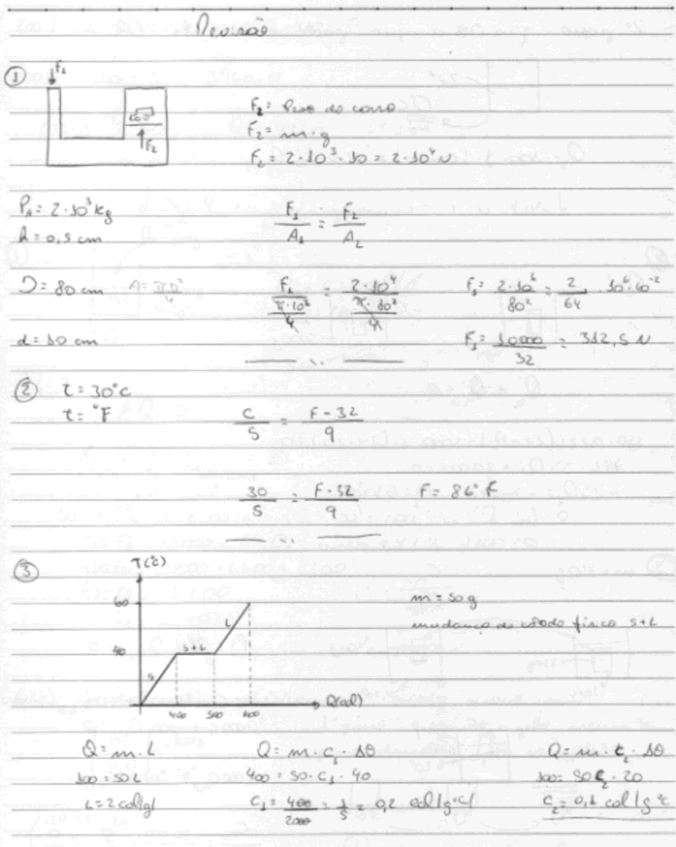 Revisão
①
F₁
carro
F₂
F₂ = Peso do carro
F₂ = m · g
F₂ = 2 · 10³ · 10 = 2 · 10⁴ N
= 2 · 10³ kg
h = 0,5 cm
F₁/A₁ = F₂/A₂
D = 80 cm A = πD²/4
F₁/(π·10²/4) = 2·10⁴/(π·80²/4)
F₁ = 2·10⁶/80² = 2/64 · 10⁶·10⁻²
d = 10 cm
F₁ = 10000/32 = 312,5 N
② t = 30°C
t = °F
C/5 = (F - 32)/9
30/5 = (F - 32)/9 F = 86° F
③ T(°C)
60
40
S
S+L
L
400 500 600 Q(cal)
m = 50g
mudança de estado físico S+L
Q = m · L Q = m · c₁ · Δθ Q = m · c₂ · Δθ
100 = 50L 400 = 50 · c₁ · 40 100 = 50c₂ · 20
L = 2 cal/g c₁ = 400/2000 = 1/5 = 0,2 cal/g°C c₂ = 0,1 cal/g°C